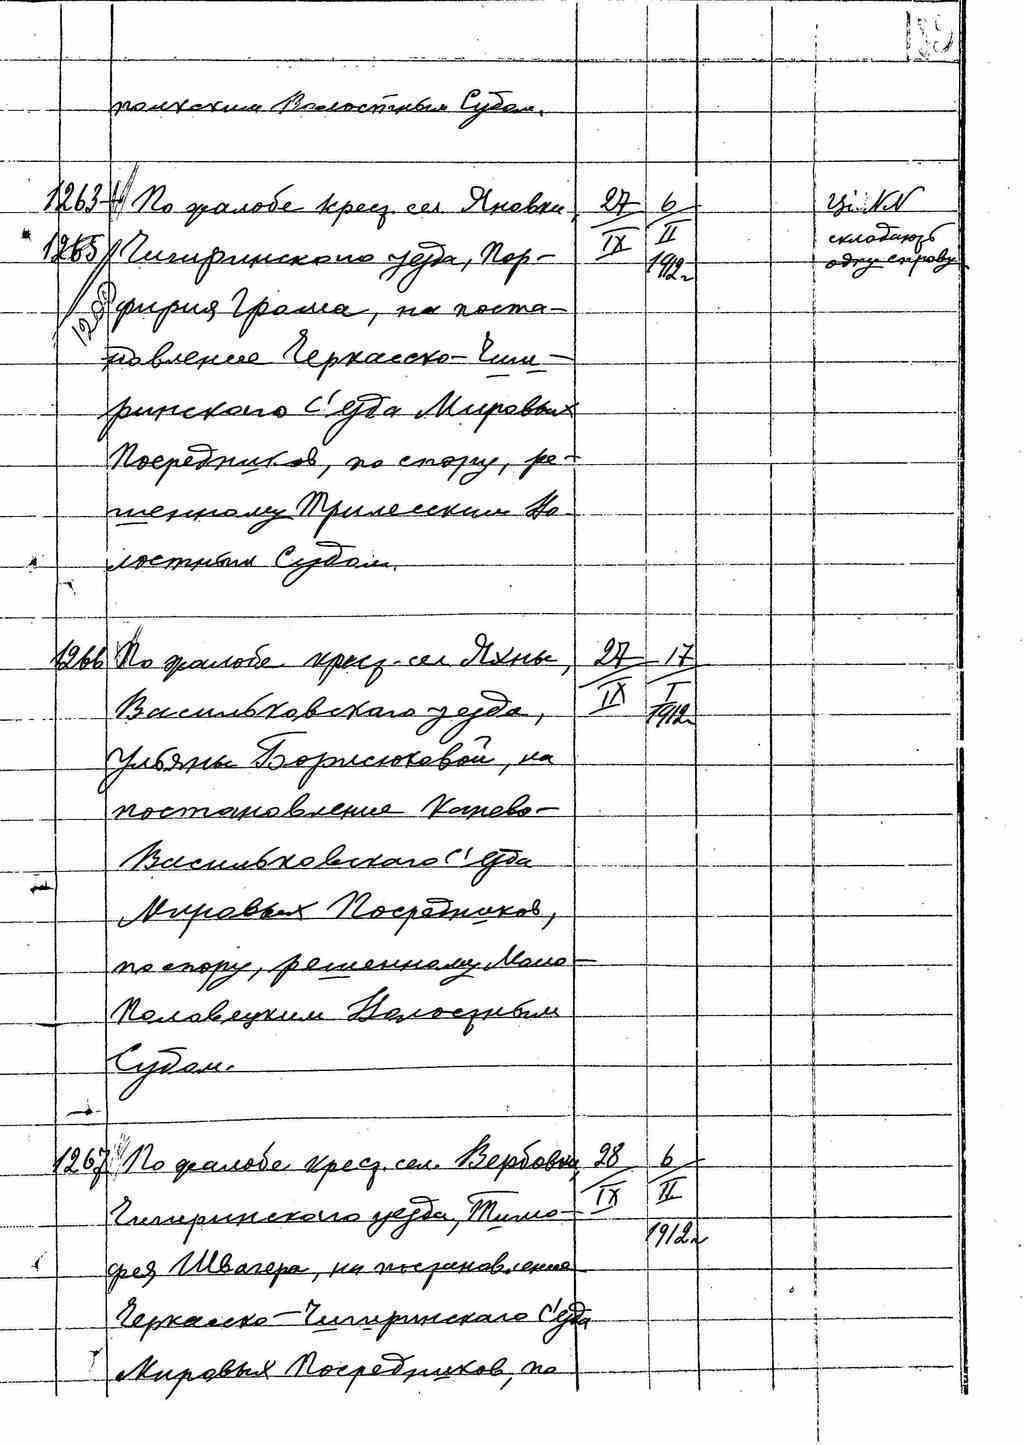 Волостным Судом.
1263- По жалобе крест. сел. Яновки, 27/IX 6/II 1912 г. Ці NN
1265 Чигиринского уезда, Пор- складають
фирия Грома, на поста- одну справу
новление Черкасско-Чиги-
ринского С'езда Мировых
Посредников, по спору, ре-
шенному Трилесским Во-
лостным Судом.
1266 По жалобе крест. сел. Яхны, 27/IX 17/I 1912 г.
Васильковского уезда,
Ульяны Борисюковой, на
постановление Канево-
Васильковского С'езда
Мировых Посредников,
по спору, решенному Мало-
Половецким Волостным
Судом.
1267 По жалобе крест. сел. Вербовки, 28/IX 6/II 1912 г.
Чигиринского уезда, Тимо-
фея Швагера, на постановление
Черкасско-Чигиринского С'езда
Мировых Посредников, по